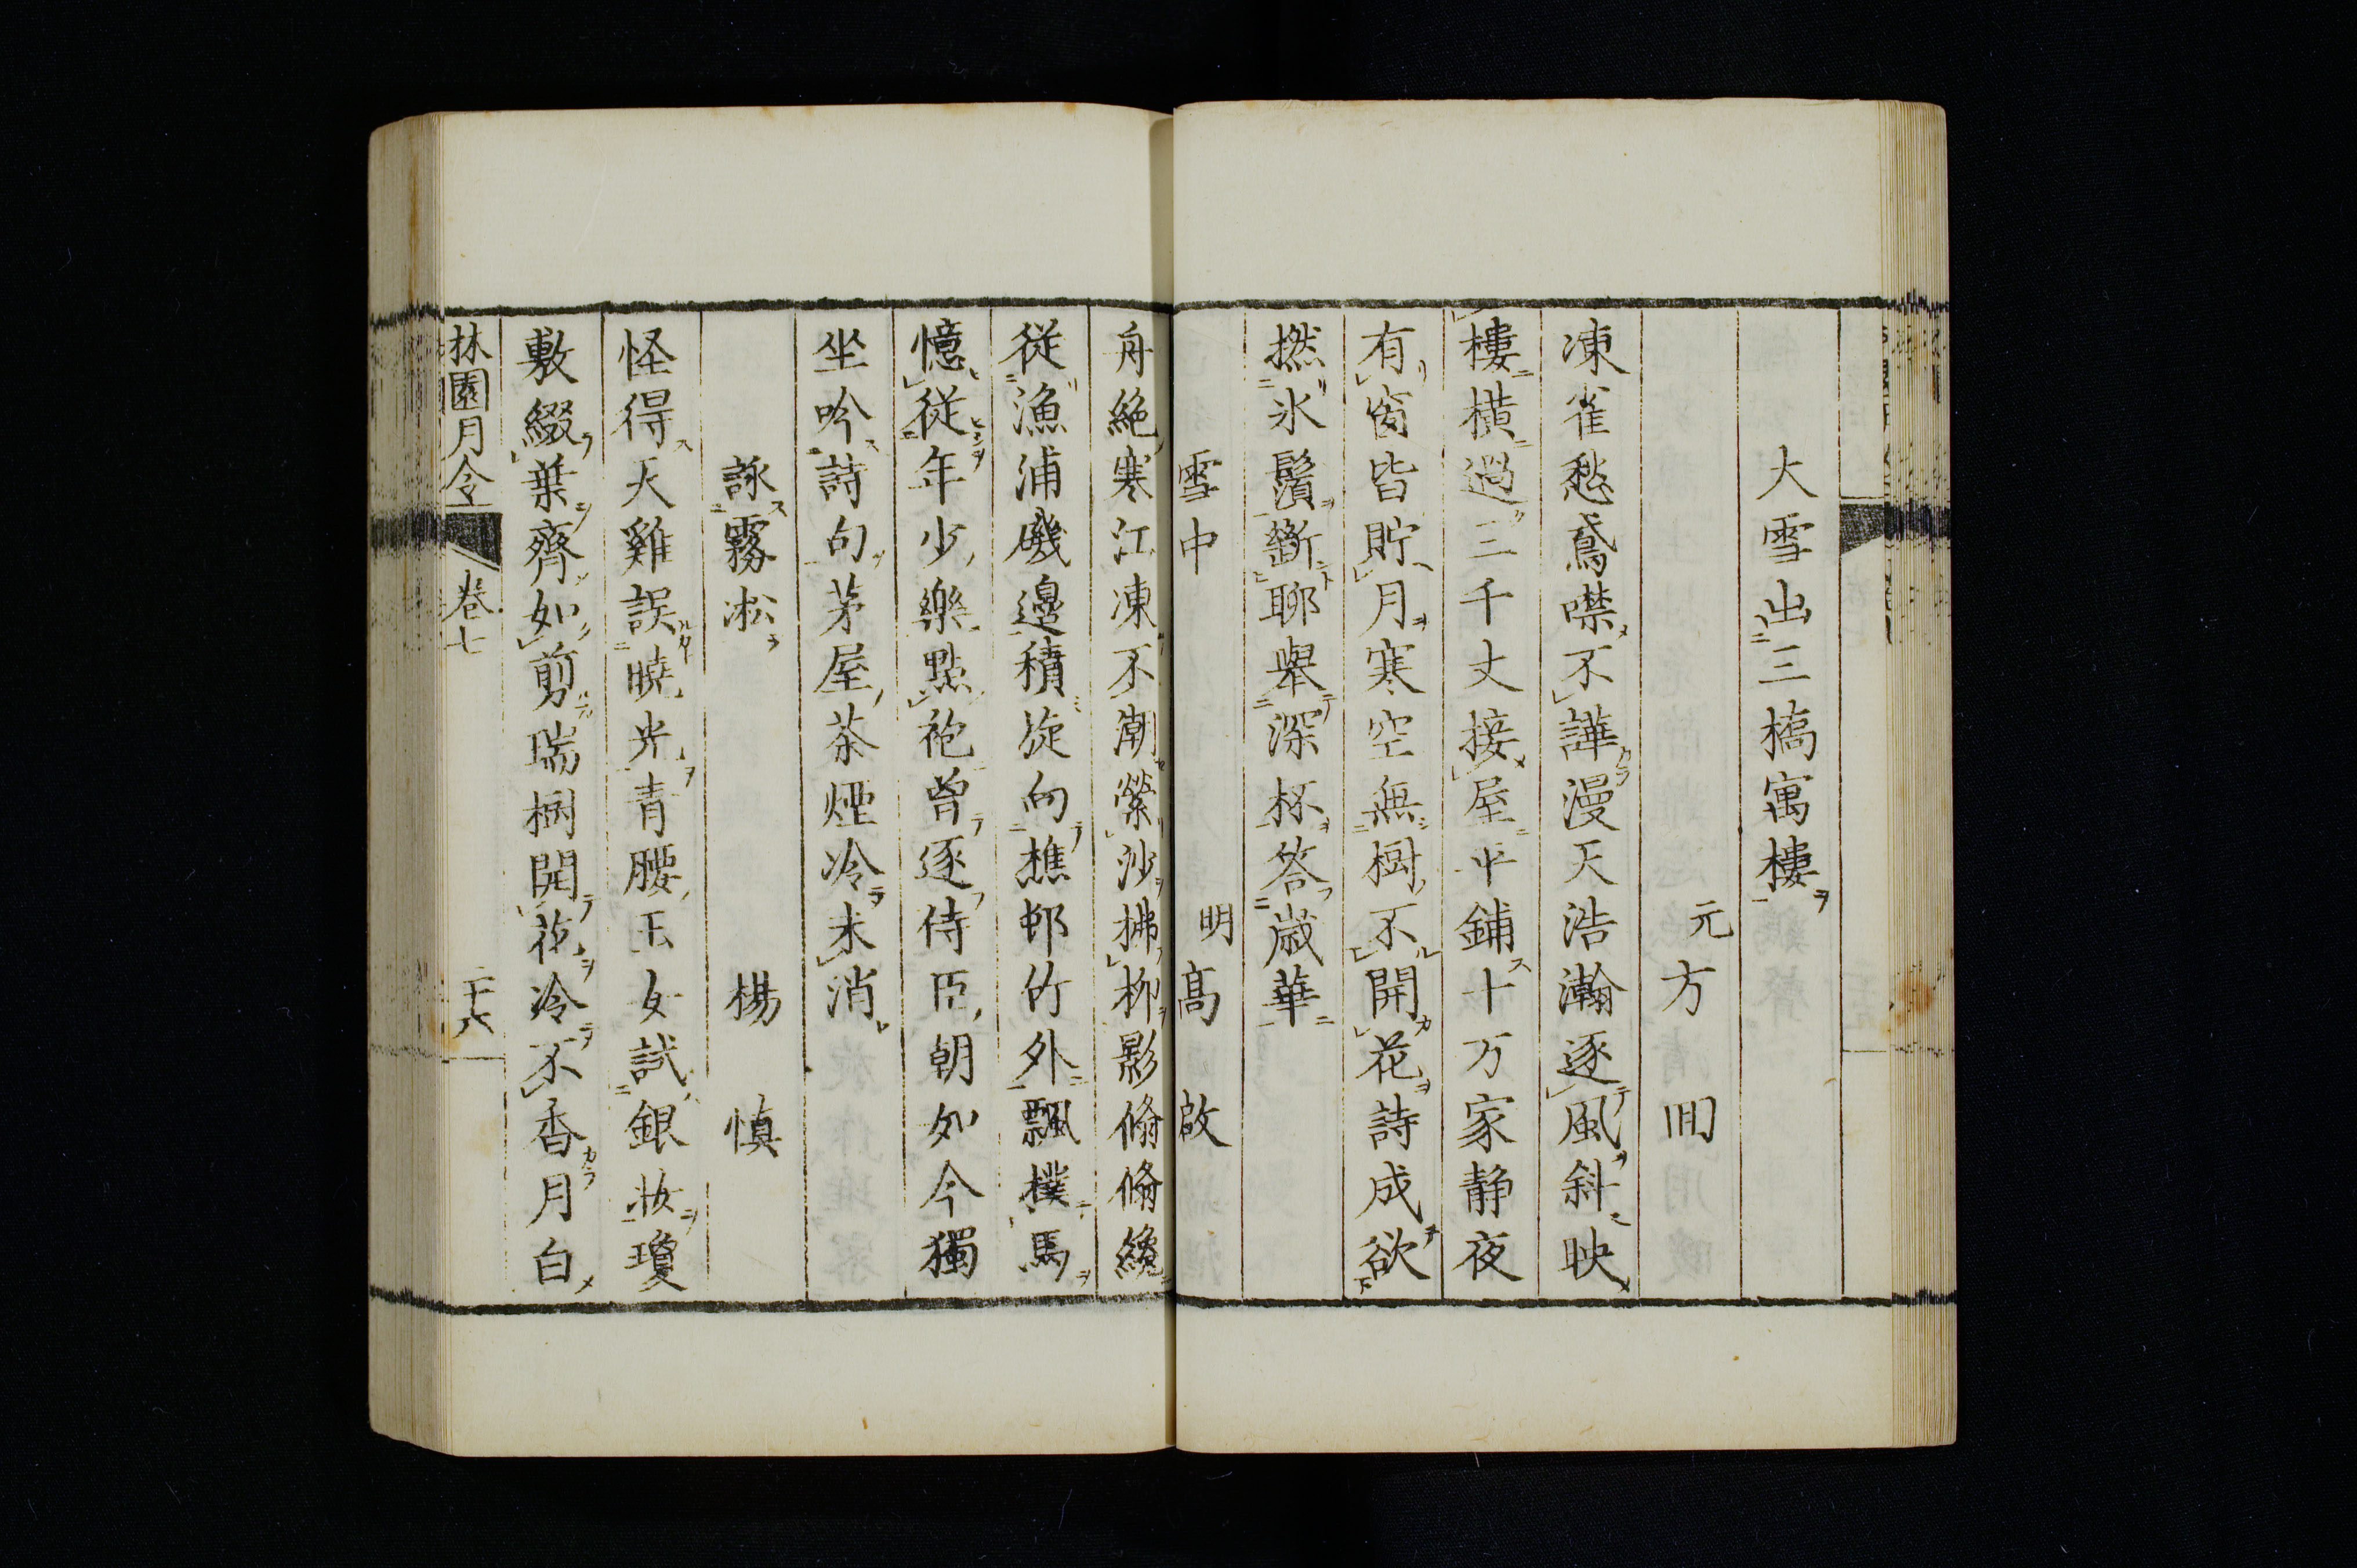 大雪出三橋寓樓
元方回
凍雀愁鳶噤不譁漫天浩瀚逐風斜映
樓橫過三千丈接屋平鋪十万家静夜
有窗皆貯月寒空無樹不開花詩成欲
撚氷鬚斷聊舉深杯答歲華
雪中 明高啟
舟絶寒江凍不潮縈沙拂柳影翛翛纔
從漁浦磯邉積旋向樵邨竹外飄撲馬
憶從年少樂點袍曾逐侍臣朝如今獨
坐吟詩句茅屋茶煙冷未消
詠霧凇 楊慎
怪得天雞誤曉光青腰玉女試銀妝瓊
敷綴葉齊如剪瑞樹開花冷不香月白
林園月令 卷七 二十六